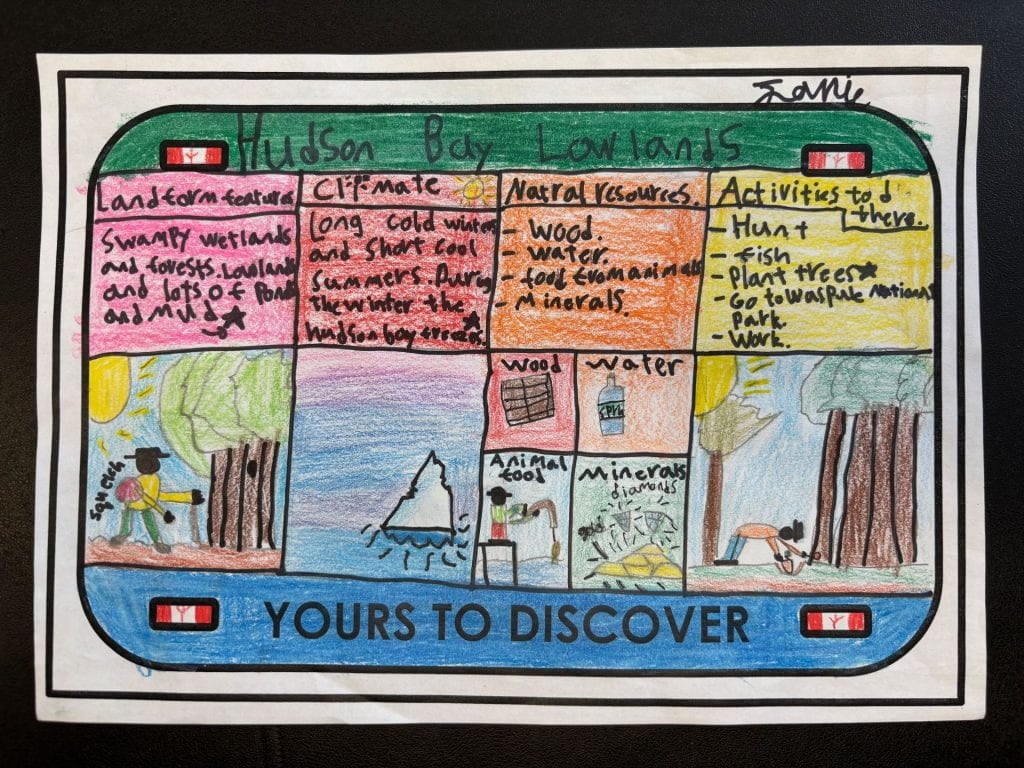 Hudson Bay Lowlands
Landform features
Climate
Natral resources.
Activities to d
there.
Swampy wetlands
and forests. Lowland
and lots of Ponds
and Mud
Long cold winters
and short cool
Summers. During
The winter the
Hudson bay freezes.
- Wood.
- Water.
- food from animals
- Minerals.
- Hunt
- fish
- Plant trees
- Go to National
Park.
- Work.
Wood
Water
Animal
food
Minerals
diamonds
gold
YOURS TO DISCOVER